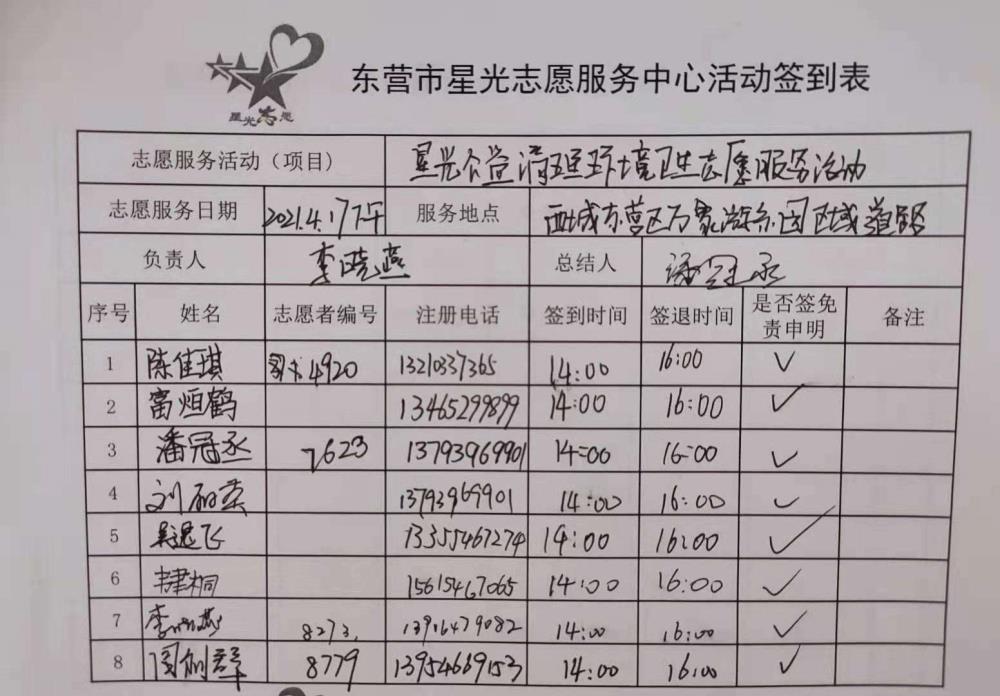 星光志愿
东营市星光志愿服务中心活动签到表
志愿服务活动（项目） 星光公益清理环境卫生志愿服务活动
志愿服务日期 2021.4.17下午 服务地点 西城东营区万象游乐园区域道路
负责人 李晓燕 总结人 潘冠丞
序号 姓名 志愿者编号 注册电话 签到时间 签退时间 是否签免责申明 备注
1 陈佳琪 4920 13210337365 14:00 16:00 ✓
2 富烜鹤 13465299899 14:00 16:00 ✓
3 潘冠丞 7623 13793969901 14:00 16:00 ✓
4 刘丽英 13793969901 14:00 16:00 ✓
5 吴逸飞 13355467274 14:00 16:00 ✓
6 韩桐 15615467065 14:00 16:00 ✓
7 李晓燕 8273. 13916479082 14:00 16:00 ✓
8 8779 13954669153 14:00 16:00 ✓